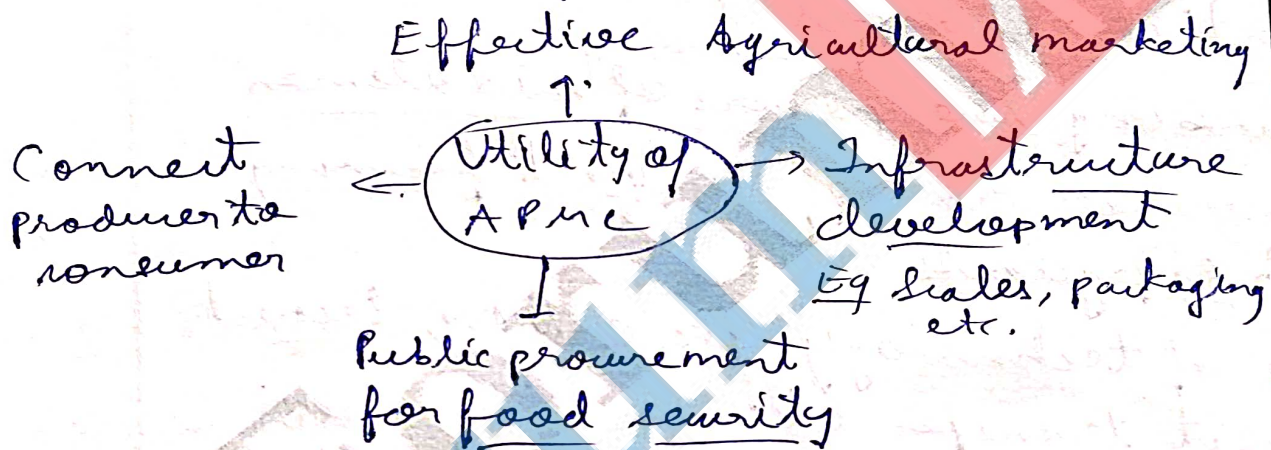 Effective Agricultural marketing
Connect
producer to
consumer
Utility of
APMC
Infrastructure
development
Eg Scales, packaging
etc.
Public procurement
for food security